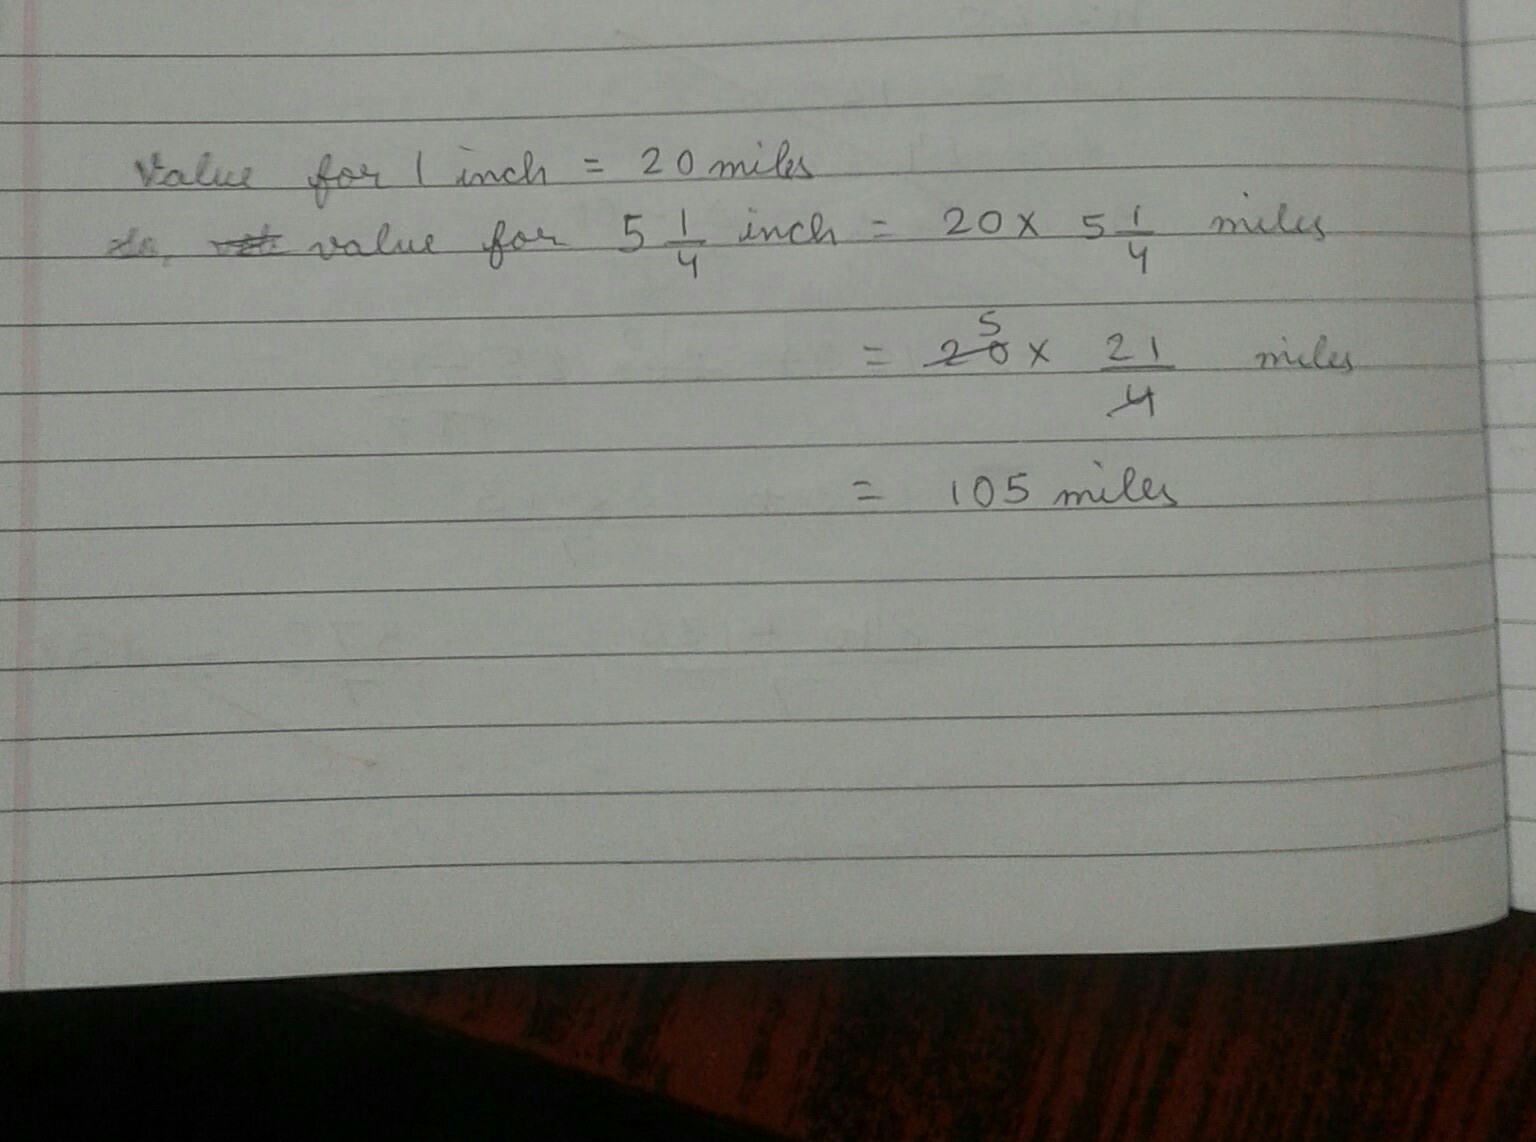 Value for 1 inch = 20 miles
value for 5 1/4 inch = 20 x 5 1/4 miles
= 20 5 x 21/4 miles
= 105 miles